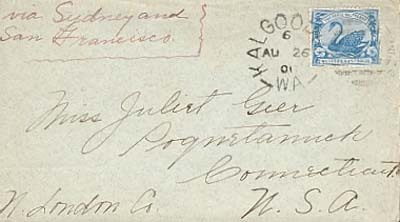 via Sydney and
San Francisco.
KALGOO
6
AU 26
01
W.A.
Miss Juliet Geer
Poquetanuck
Connecticut
N. London Co.
U. S. A.